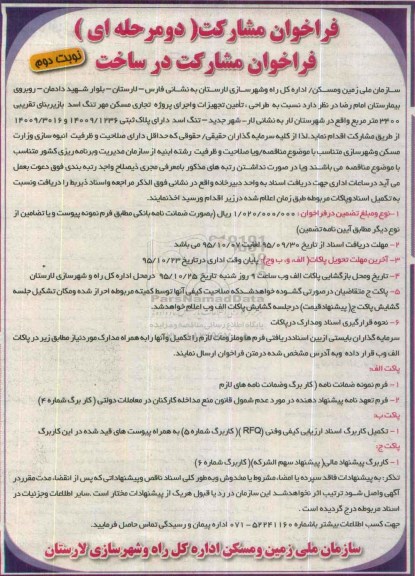 فراخوان مشارکت( دومرحله ای )
فراخوان مشارکت در ساخت
نوبت دوم
سازمان ملی زمین ومسکن/ اداره کل راه وشهرسازی لارستان به نشانی فارس – لارستان – بلوار شهید دادمان – روبروی
بیمارستان امام رضا در نظر دارد نسبت به طراحی ، تأمین تجهیزات واجرای پروژه تجاری مسکن مهر تنگ اسد بازیربنای تقریبی
۳۴۰۰ متر مربع واقع در شهرستان لار به نشانی لار- شهر جدید – تنگ اسد دارای پلاک ثبتی ۱۴۰۰۹/۱۲۳۶ و ۱۴۰۰۹/۳۰۱۶
از طریق مشارکت اقدام نماید.لذا از کلیه سرمایه گذاران حقیقی/ حقوقی که حداقل دارای صلاحیت و ظرفیت انبوه سازی وزارت
مسکن وشهرسازی متناسب با موضوع مناقصه/ویا صلاحیت و ظرفیت رشته ابنیه از سازمان مدیریت وبرنامه ریزی کشور متناسب
با موضوع مناقصه می باشند ویا در صورت نداشتن رتبه های مذکور بامعرفی مجری ذیصلاح واجد رتبه بندی فوق دعوت بعمل
می آید درساعات اداری جهت دریافت اسناد به واحد دبیرخانه واقع در نشانی فوق الذکر مراجعه واسناد ذیربط را دریافت ونسبت
به تکمیل اسناد وپاکات مربوطه طبق زمان اعلام شده در زیر اقدام ورسید اخذنمایند.
۱-نوع ومبلغ تضمین در فراخوان : ۱/۰۲۰/۰۰۰/۰۰۰ ریال (بصورت ضمانت نامه بانکی مطابق فرم نمونه پیوست و یا تضامین از
نوع دیگر مطابق آیین نامه تضمین)
۲- مهلت دریافت اسناد از تاریخ ۹۵/۰۹/۳۰ لغایت ۹۵/۱۰/۰۷ می باشد
۳-آخرین مهلت تحویل پاکات( الف و، ب وج): پایان وقت اداری در تاریخ ۹۵/۱۰/۲۳
۴- تاریخ ومحل بازگشایی پاکات الف وب ساعت ۹ روز شنبه تاریخ ۹۵/۱۰/۲۵ درمحل اداره کل راه و شهرسازی لارستان
۵- پاکت ج متقاضیان در صورتی گشوده خواهدشدکه صلاحیت کیفی آنها توسط کمیته مربوطه احراز شده ومکان تشکیل جلسه
گشایش پاکات ج( پیشنهادقیمت)درجلسه گشایش پاکات الف وب اعلام خواهدشد.
۶- نحوه قرارگیری اسناد ومدارک درپاکات
سرمایه گذاران بایستی ازبین اسناد دریافتی فرم ها وملزومات لازم را تکمیل وآنها را به همراه مدارک موردنیاز مطابق زیر در پاکات
الف وب قرار داده وبه آدرس مشخص شده درمتن فراخوان ارسال نمایند.
پاکت الف:
۱- فرم نمونه ضمانت نامه ( کاربرگ وضمانت نامه های لازم
۲- فرم تعهد نامه پیشنهاد دهنده در مورد عدم شمول قانون منع مداخله کارکنان در معاملات دولتی ( کاربرگ شماره ۴)
پاکت ب:
۱- تکمیل کاربرگ اسناد ارزیابی کیفی وفنی (RFQ )( کاربرگ شماره ۵) به همراه پیوست های قید شده در این کاربرگ
پاکت ج:
۱- کاربرگ پیشنهاد مالی( پیشنهاد سهم الشرکه)( کاربرگ شماره ۶)
تذکر: به پیشنهادات فاقد سپرده یا امضا، مشروط یا مخدوش وبه طور کلی اسناد ناقص وپیشنهاداتی که پس از انقضا، مدت مقرر در
آگهی واصل شود ترتیب اثر نخواهدشد. این سازمان در رد یا قبول هریک از پیشنهادات مختار است . سایر اطلاعات وجزئیات در
اسناد مربوطه درج گردیده است .
جهت کسب اطلاعات بیشتر باشماره ۵۲۲۴۱۱۶۰ - ۰۷۱ اداره پیمان و رسیدگی تماس حاصل فرمایید.
سازمان ملی زمین ومسکن اداره کل راه وشهرسازی لارستان